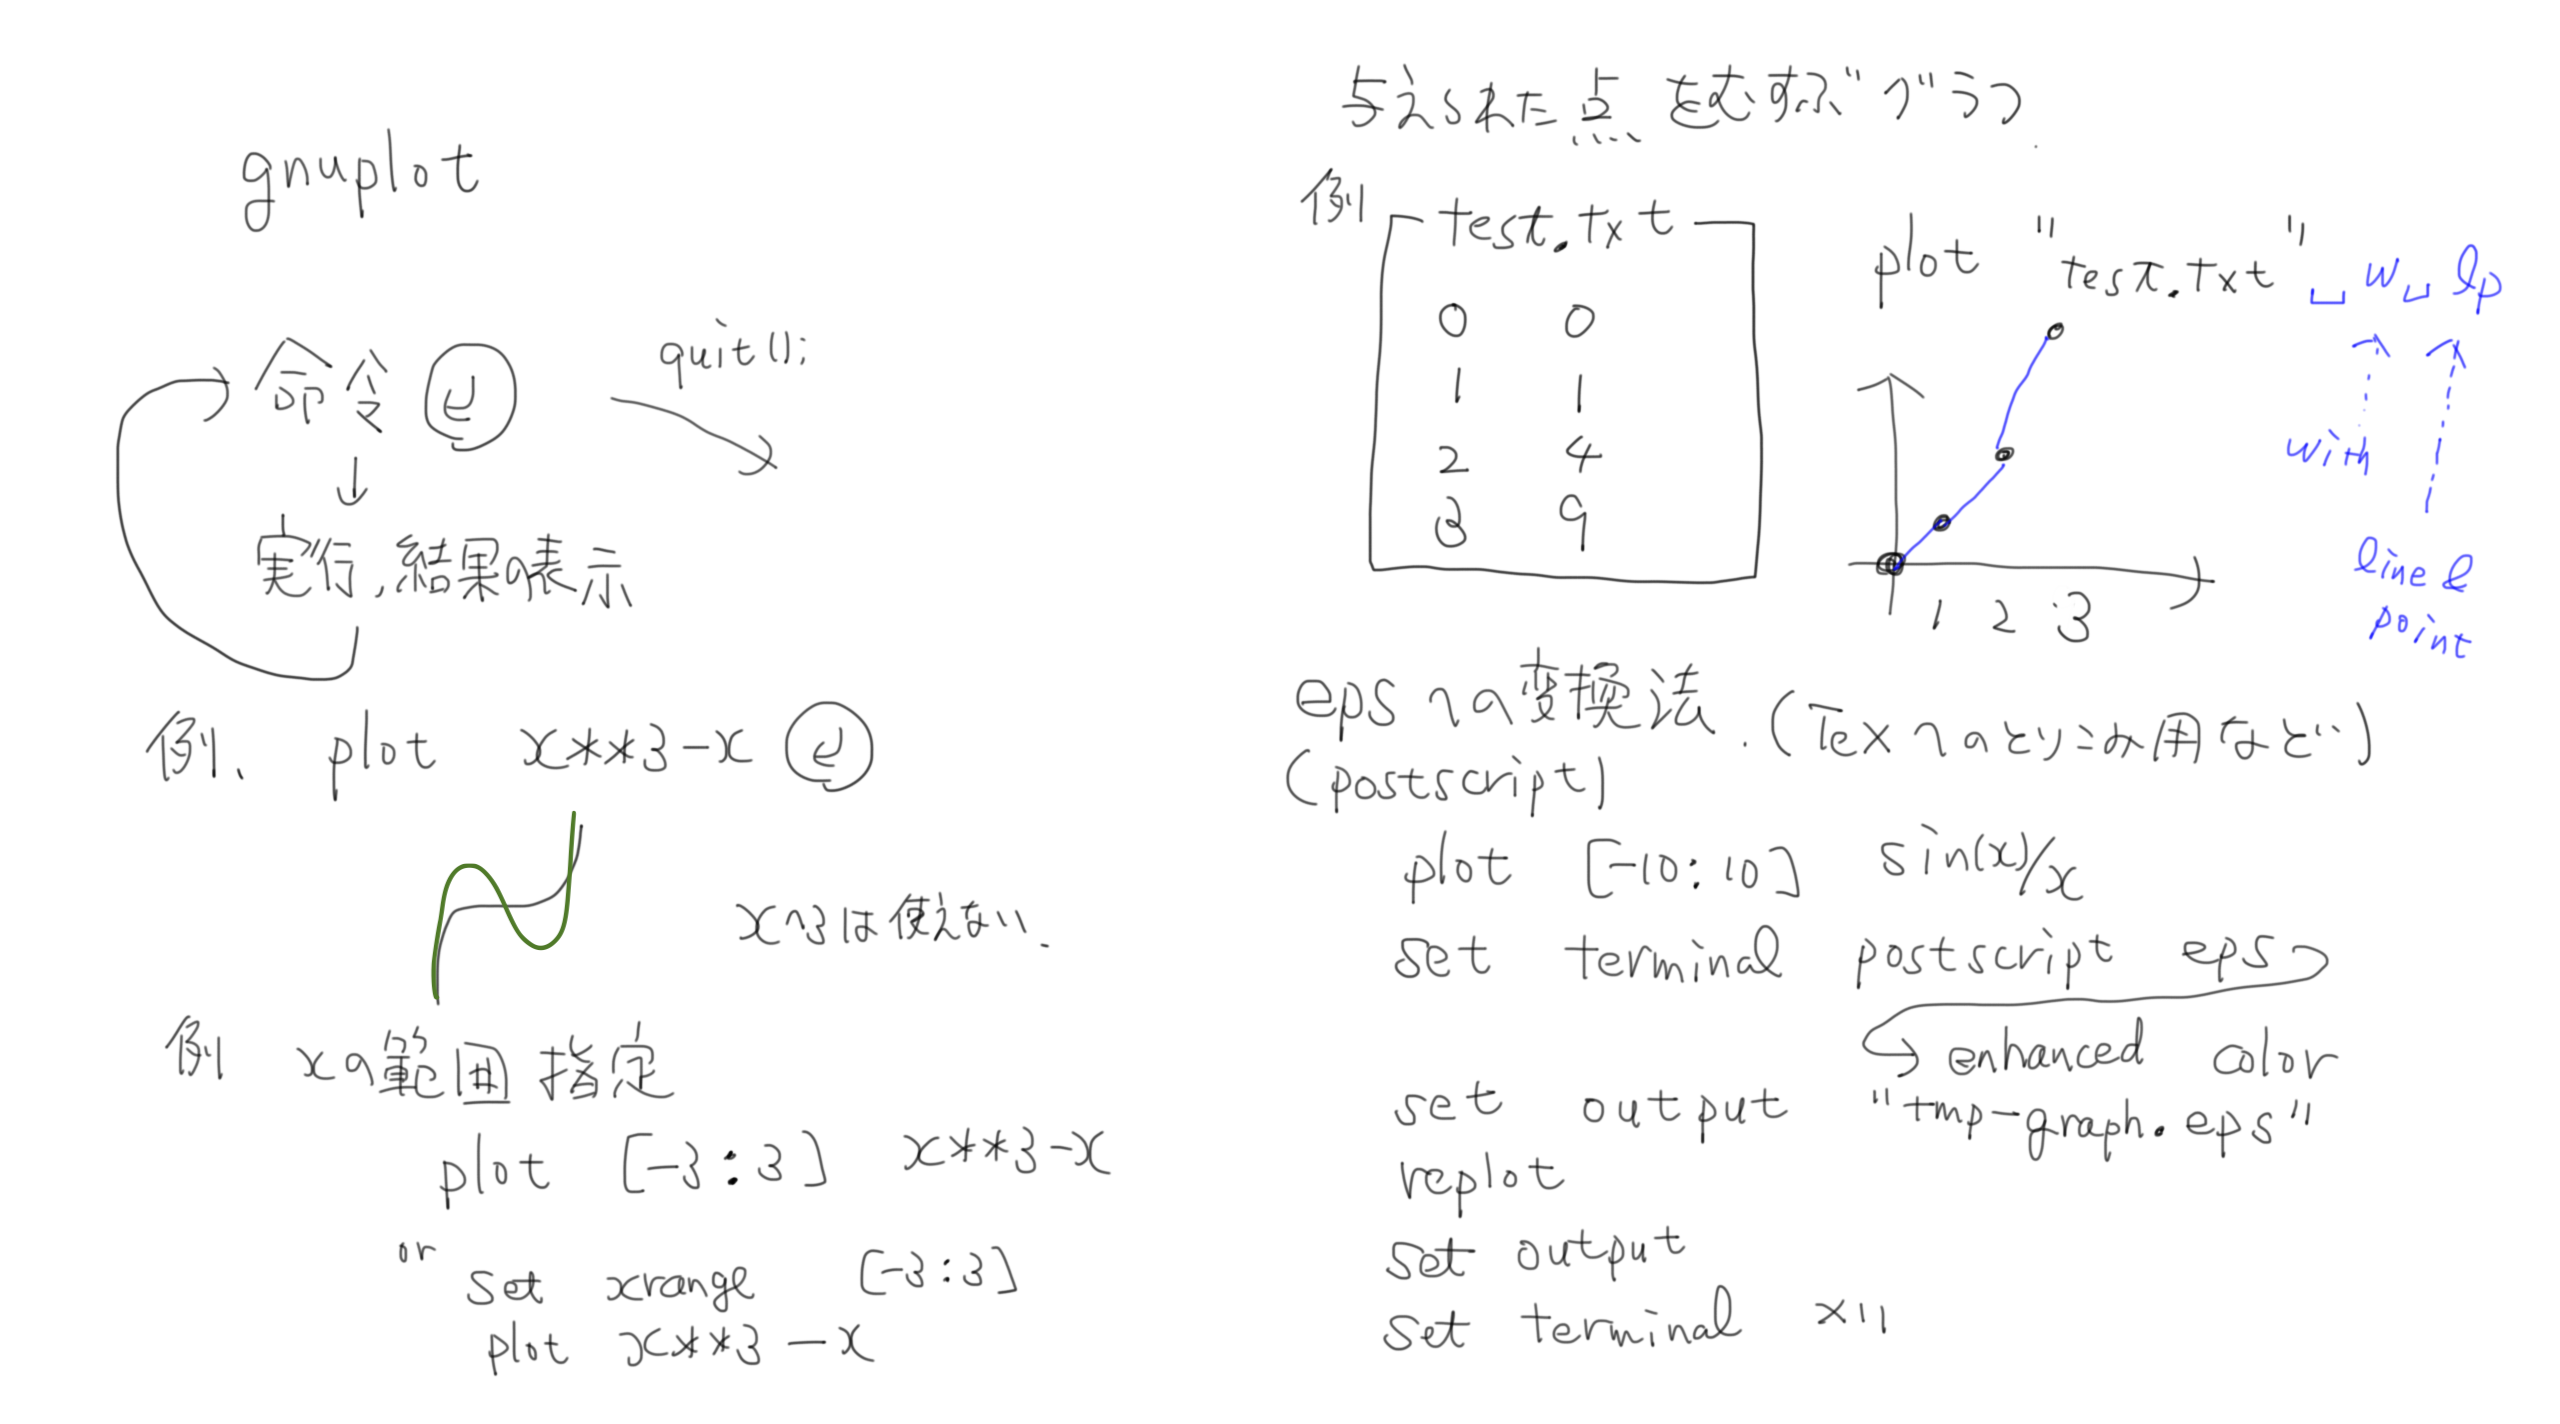 gnuplot
命令 ↵
quit();
実行,結果の表示
例、 plot x**3-x ↵
x^3は使えない.
例 xの範囲指定
plot [-3:3] x**3-x
or
set xrange [-3:3]
plot x**3-x
与えられた点をむすぶグラフ
例
test.txt
0 0
1 1
2 4
3 9
plot "test.txt"␣w␣lp
with
line &
point
1 2 3
epsへの変換法.(TeXへのとりこみ用など)
(postscript)
plot [-10:10] sin(x)/x
set terminal postscript eps
enhanced color
set output "tmp-graph.eps"
replot
set output
set terminal x11